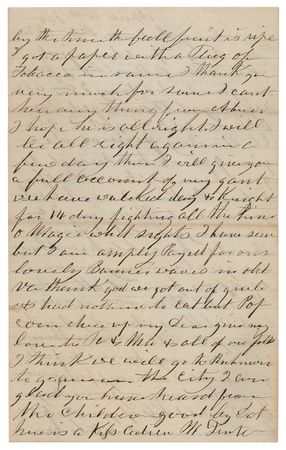 by the time the fall fruit is ripe
I got a paper with a Plug of
Tobacco in same I thank you
very much for same I cant
hear any thing from others
I hope he is all right I will
be all right again in a
few days then I will give you
a full account of my
we have walked day & Knight
for 14 days fighting all the time
O Magie what sights I have seen
but I am amply Payed for our
lovely Banner waves in old
Va thank god we got out of grub
& had nothing to eat but Pop
corn chew up my Dear give my
love to & Ma & all of our folks
I think we will go to Richmond
to the City I am
glad you have heard from
the Children good by
here is a Kiss